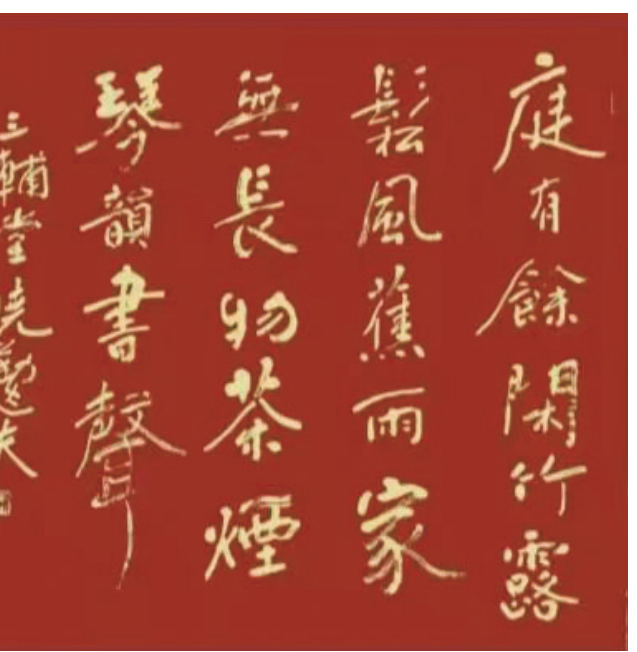 庭有餘閑竹露
鬆風蕉雨家
無長物茶煙
琴韻書聲
三輔堂曉勤逸夫